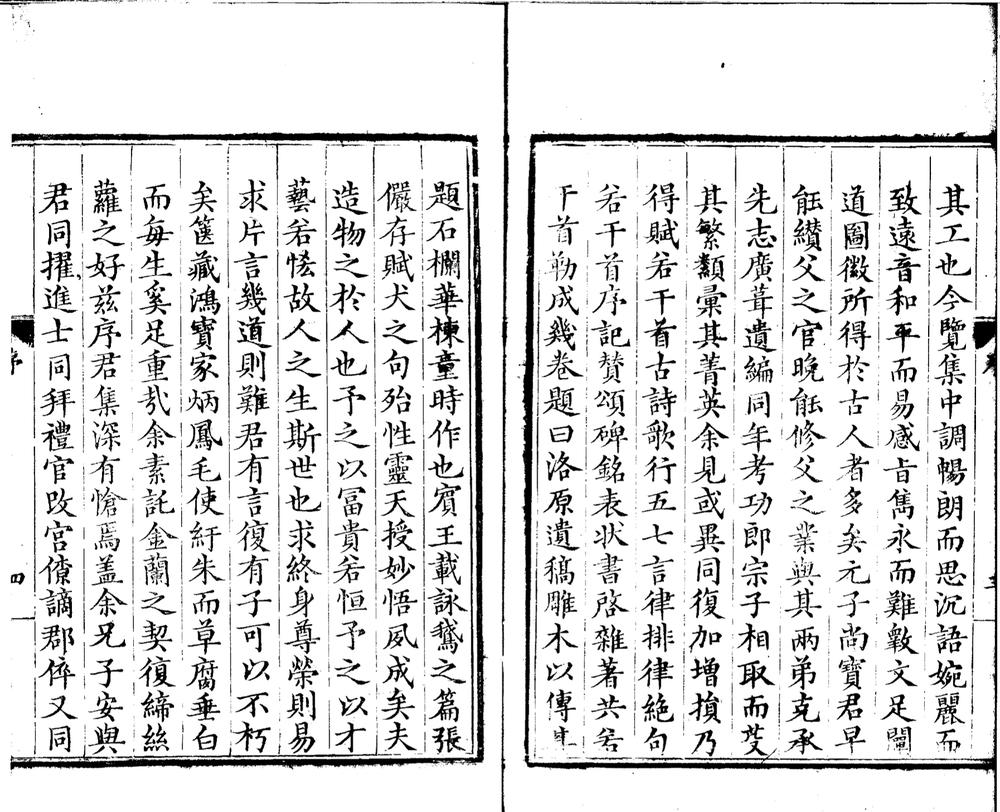 其工也今覽集中調暢朗而思沉語婉麗而
致遠音和平而易感旨雋永而難斁文足闡
道圖徽所得於古人者多矣元子尚寶君早
能纘父之官晚能修父之業與其兩弟克承
先志廣葺遺編同年考功郎宗子相取而芟
其繁纇彙其菁英余見或異同復加增損乃
得賦若干首古詩歌行五七言律排律絕句
若干首序記贊頌碑銘表狀書啓雜著共若
干首勒成幾卷題曰洛原遺稿雕木以傳其
題石欄華棟童時作也賓王載詠鵝之篇張
儼存賦犬之句殆性靈天授妙悟夙成矣夫
造物之於人也予之以冨貴若恒予之以才
藝若恡故人之生斯世也求終身尊榮則易
求片言幾道則難君有言復有子可以不朽
矣篋藏鴻寶家炳鳳毛使紆朱而草腐垂白
而每生奚足重哉余素託金蘭之契復締絲
蘿之好兹序君集深有愴焉蓋余兄子安與
君同擢進士同拜禮官改宮僚謫郡倅又同
序
四